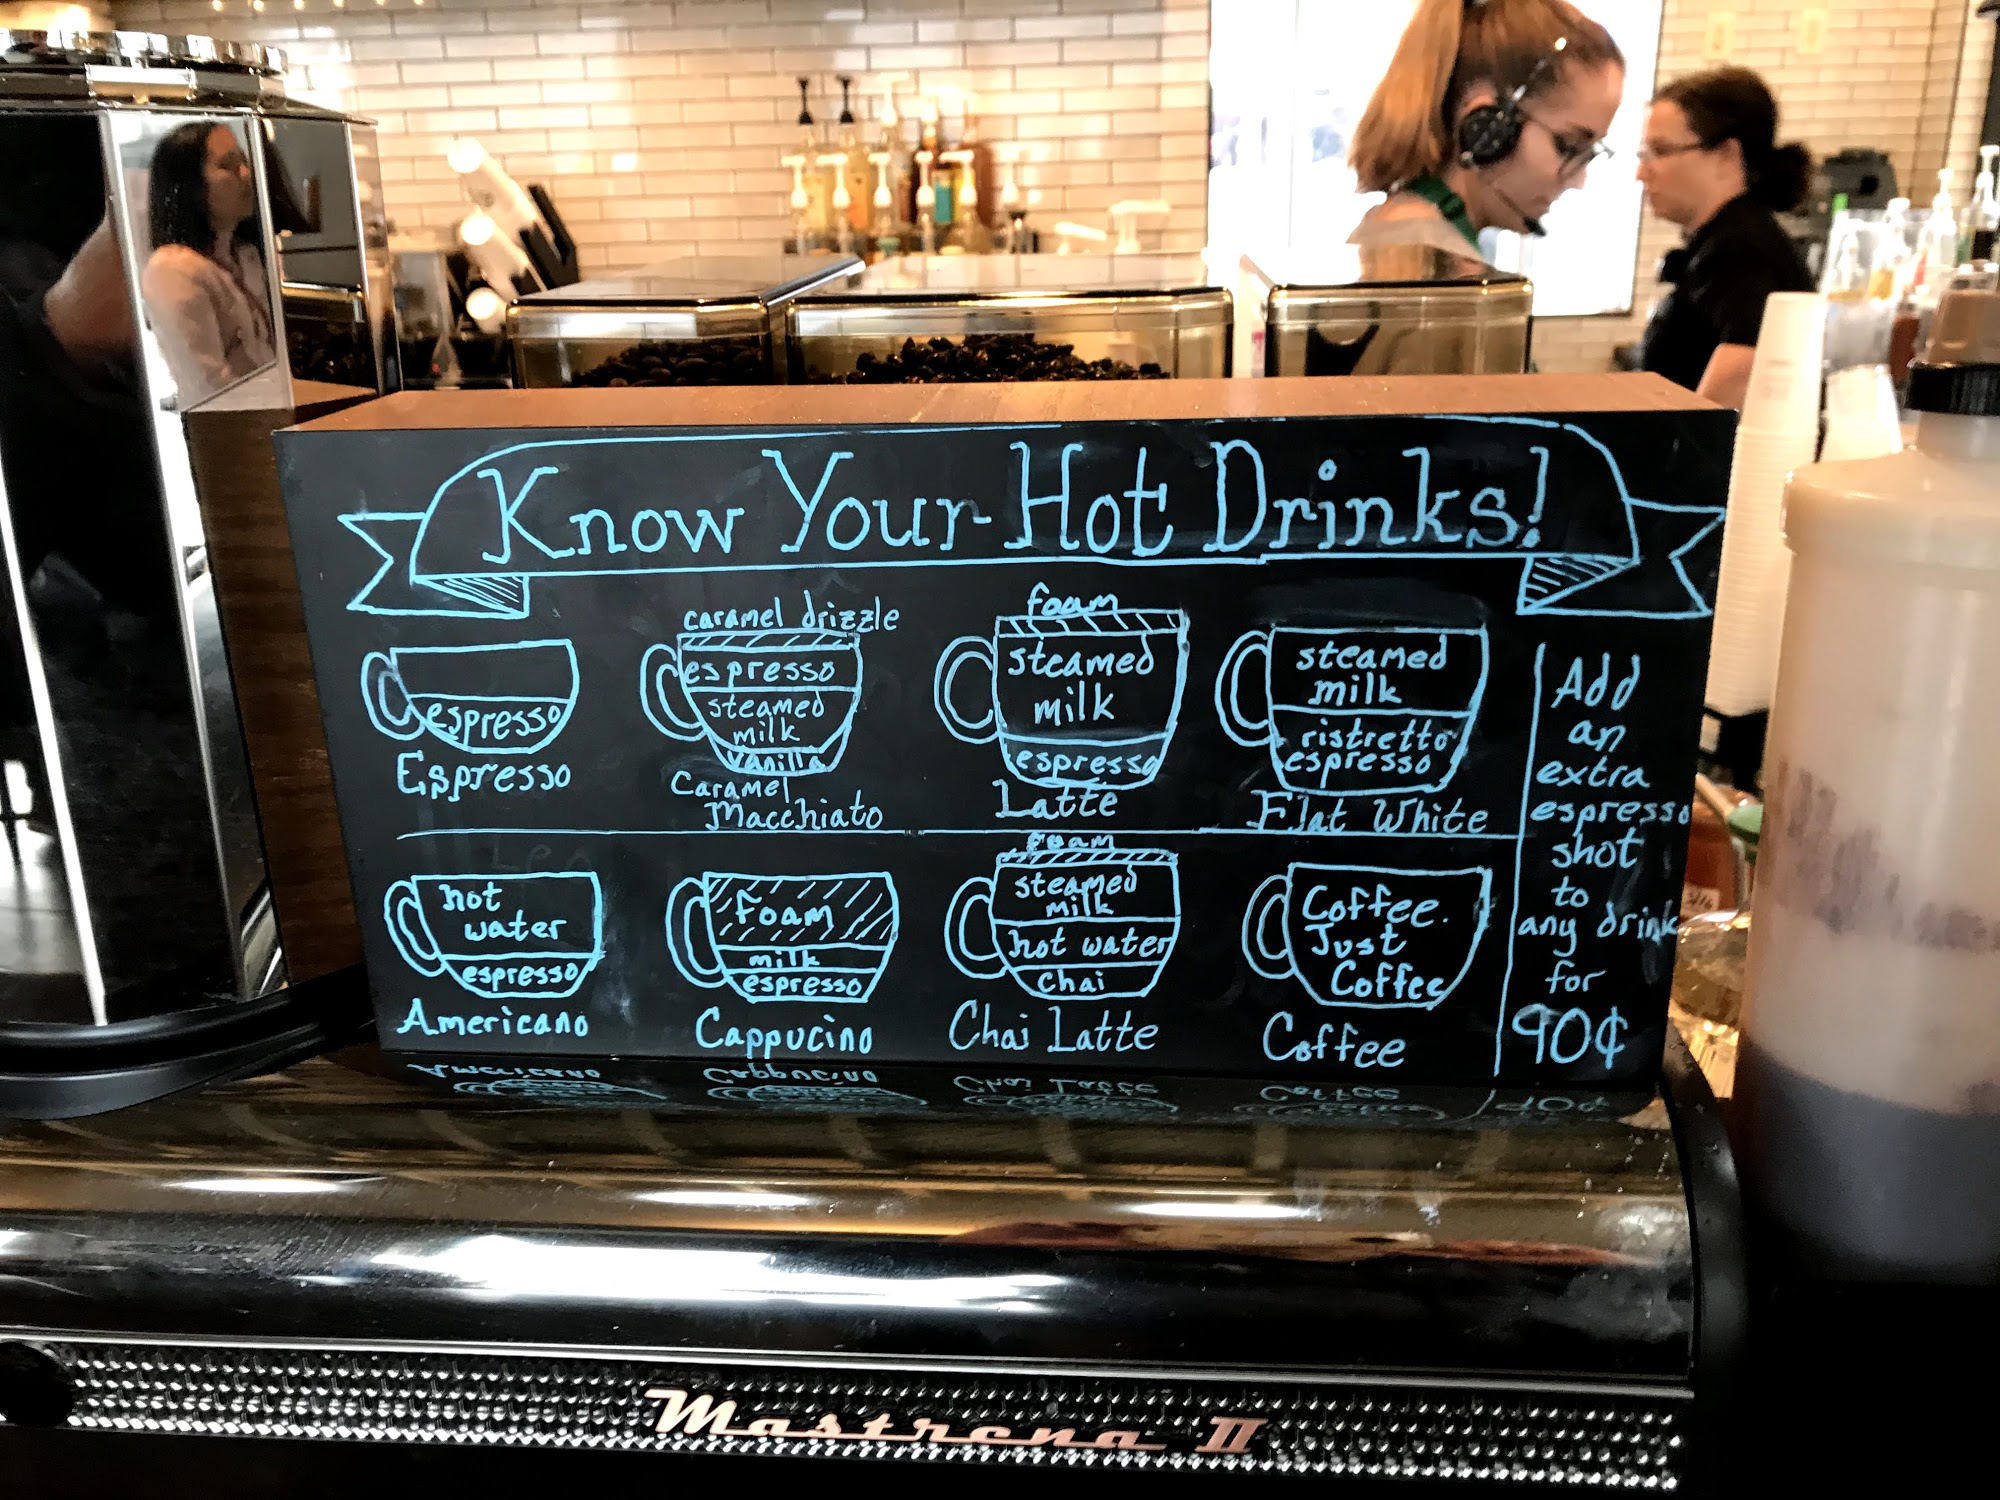 Know Your Hot Drinks!
espresso
Espresso
caramel drizzle
espresso
steamed
milk
vanilla
Caramel
Macchiato
foam
steamed
milk
espresso
Latte
steamed
milk
ristretto
espresso
Flat White
hot
water
espresso
Americano
foam
milk
espresso
Cappucino
foam
steamed
milk
hot water
chai
Chai Latte
Coffee.
Just
Coffee
Coffee
Add
an
extra
espresso
shot
to
any drink
for
90¢
Mastrena II